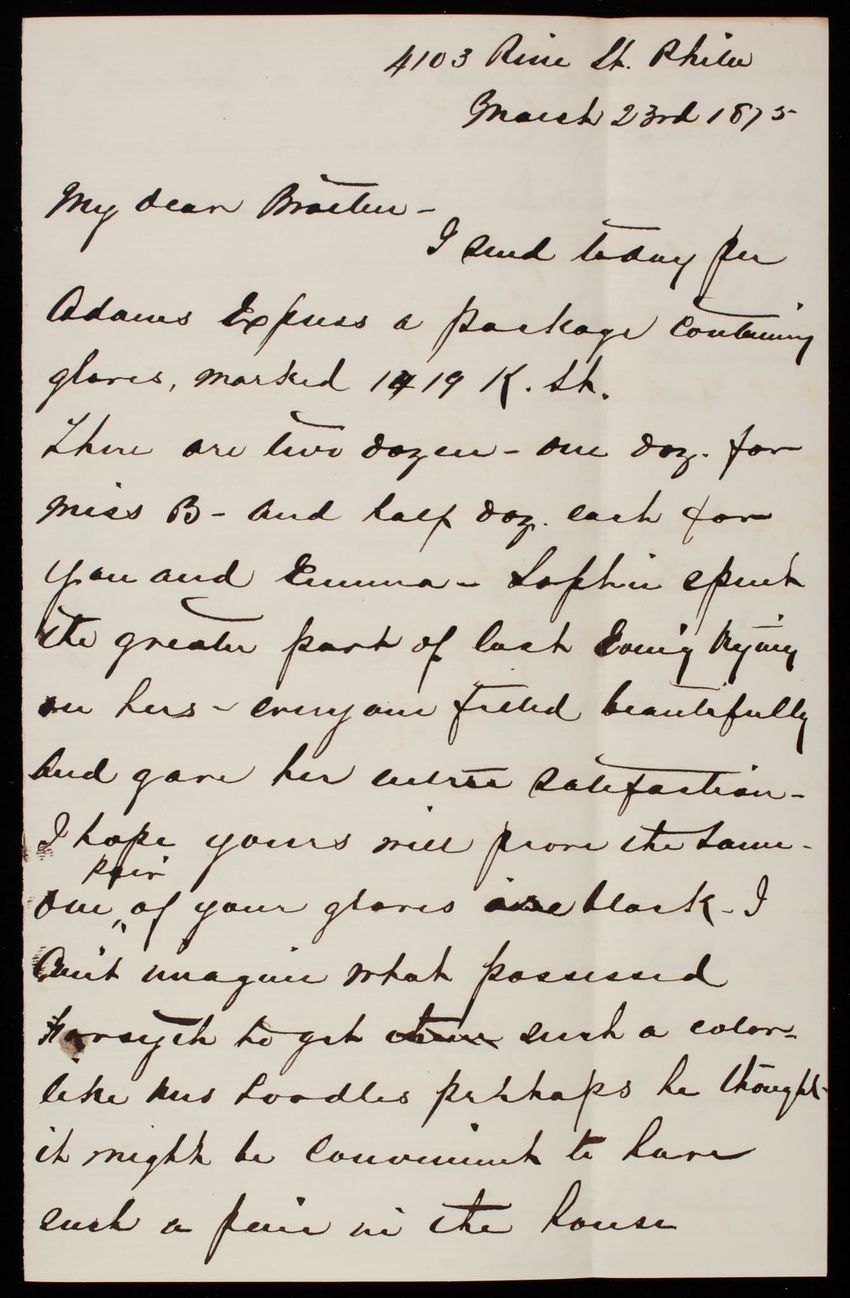 4103 Pine St. Phila
March 23rd 1875
My dear Brother -
I send today per
Adams Express a package containing
gloves, marked 1419 K. St.
There are two dozen - one doz. for
Miss B - and half doz. each for
you and Emma - Sophie spent
the greater part of last Evenig trying
on hers - every one fitted beautifully
and gave her entire satisfaction -
I hope yours will prove the same -
One pair of your gloves are black - I
Can't imagine what possessed
Forsyth to get them such a color -
like Mrs Toodles perhaps he thought
it might be convenient to have
such a pair in the house